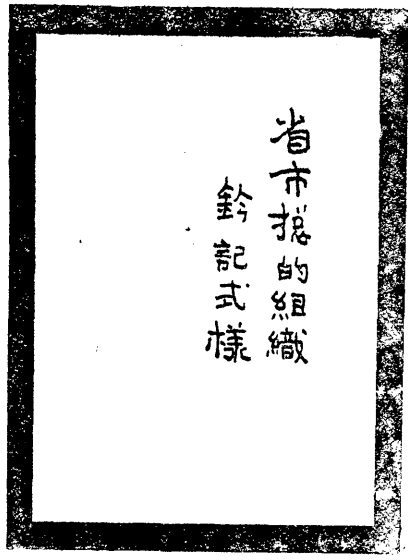 省市摠的組織
鈐記式樣